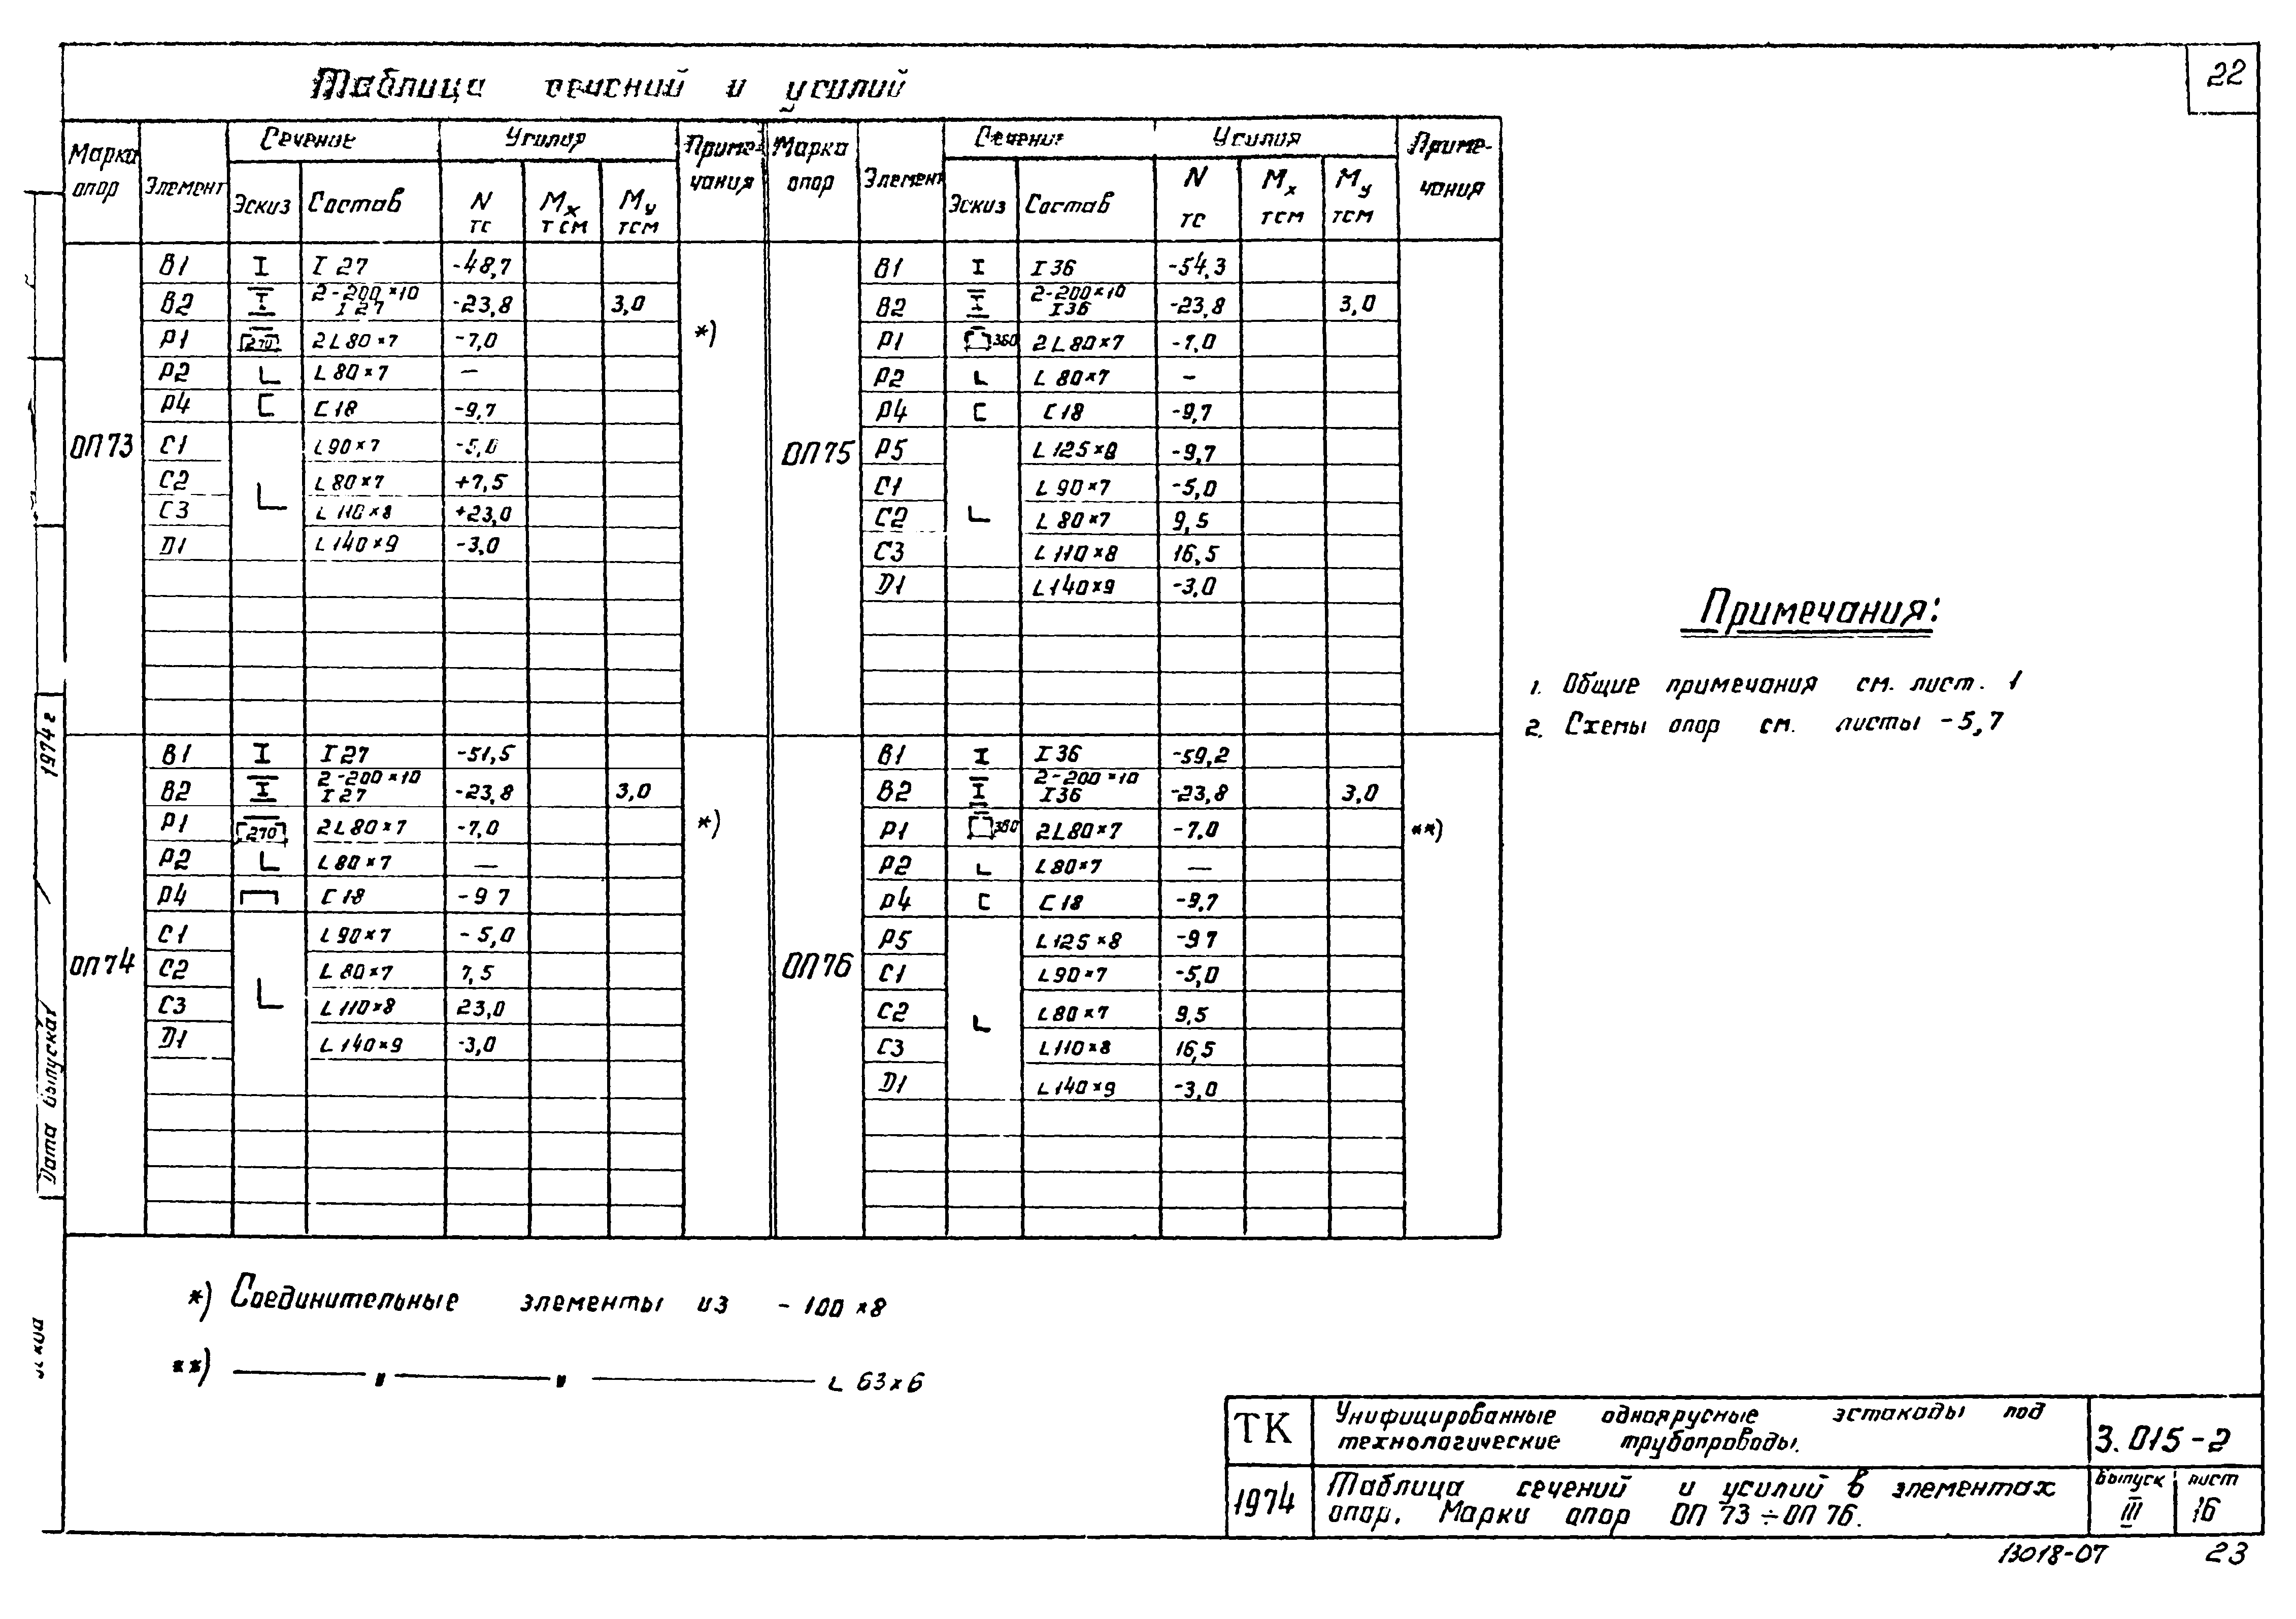 22
Таблица сечений и усилий
Марка опор Элемент Сечение Усилия Приме-чания Марка опор Элемент Сечение Усилия Приме-чания
Эскиз Состав N тс Mx тсм Му тсм Эскиз Состав N тс Mx тсм Му тсм
ОП73
В1 I I 27 -48,7
В2 2-200×10 I 27 -23,8 3,0
Р1 270 2L80×7 -7,0 *)
Р2 L L80×7 —
Р4 [ [18 -9,7
С1 L90×7 -5,0
С2 L80×7 +7,5
С3 L L110×8 +23,0
D1 L140×9 -3,0
ОП75
В1 I I36 -54,3
В2 2-200×10 I36 -23,8 3,0
Р1 360 2L80×7 -7,0
Р2 L L80×7 -
Р4 [ [18 -9,7
Р5 L125×8 -9,7
С1 L90×7 -5,0
С2 L L80×7 9,5
С3 L110×8 16,5
D1 L140×9 -3,0
ОП74
В1 I I27 -51,5
В2 2-200×10 I27 -23,8 3,0
Р1 270 2L80×7 -7,0 *)
Р2 L L80×7 —
Р4 [18 -9 7
С1 L90×7 -5,0
С2 L80×7 7,5
С3 L L110×8 23,0
D1 L140×9 -3,0
ОП76
В1 I I36 -59,2
В2 2-200×10 I36 -23,8 3,0
Р1 360 2L80×7 -7,0 **)
Р2 L L80×7 —
Р4 [ [18 -9,7
Р5 L125×8 -9 7
С1 L90×7 -5,0
С2 L80×7 9,5
С3 L L110×8 16,5
D1 L140×9 -3,0
Примечания:
1. Общие примечания см. лист. 1
2. Схемы опор см. листы -5,7
*) Соединительные элементы из -100×8
**) — " — " — L 63×6
1974 г
Дата выпуска
ТК Унифицированные одноярусные эстакады под
технологические трубопроводы.
3.015-2
1974 Таблица сечений и усилий в элементах
опор. Марки опор ОП 73÷ОП 76.
Выпуск III лист 16
13018-07 23